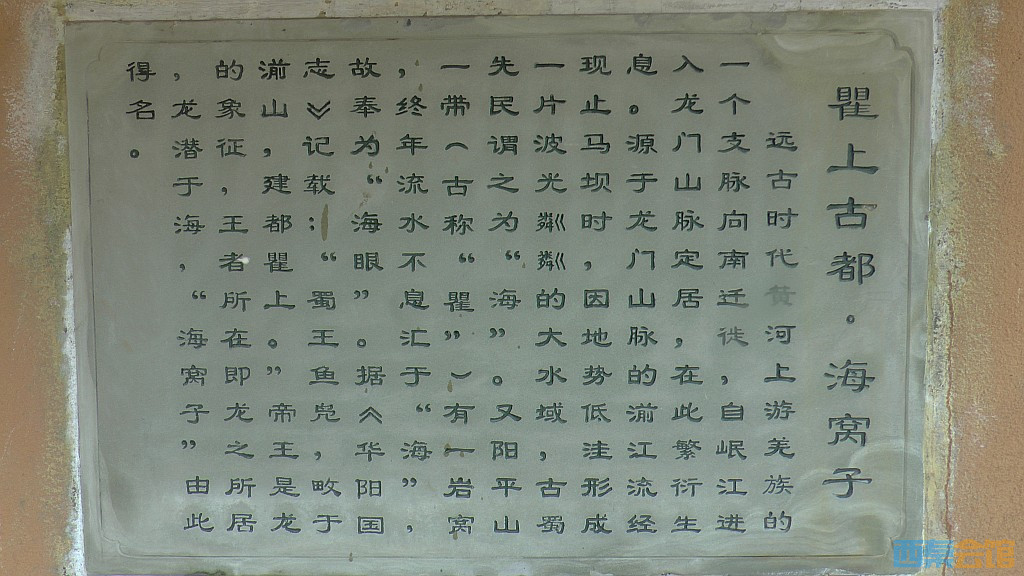 瞿上古都·海窝子
远古时代黄河上游羌族的
一个支脉向南迁徙，自岷江进
入龙门山脉定居，在此繁衍生
息。源于龙门山脉的湔江流经
现止马坝时，因地势低洼形成
一片波光粼粼的大水域，古蜀
先民谓之为“海”。又阳平山
一带（古称“瞿”）有一岩窝
，终年流水不息汇于“海”，
故奉为“海眼”。据《华阳国
志》记载：“蜀王鱼凫，畋于
湔山，建都瞿上。”帝王是龙
的象征，王者所在即龙之所居
，龙潜于海，“海窝子”由此
得名。